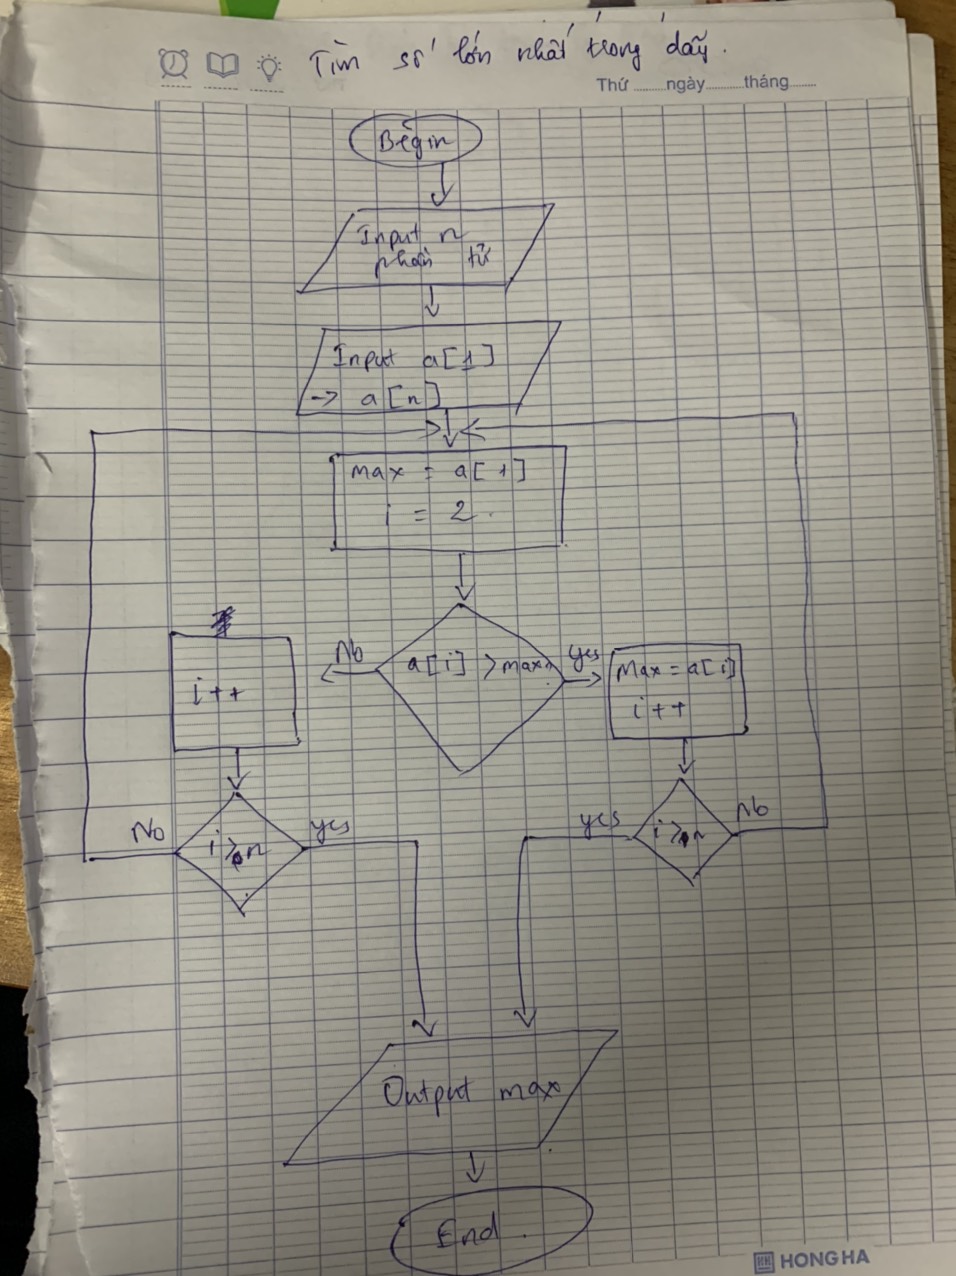 Tìm số lớn nhất trong dãy.
Thứ ........ngày.........tháng......
Begin
Input n
phần tử
Input a[1]
-> a[n]
max = a[1]
i = 2.
No
a[i] > max
yes
i++
Max = a[i]
i++
No
i > n
yes
yes
i > n
No
Output max
End.
HONG HA